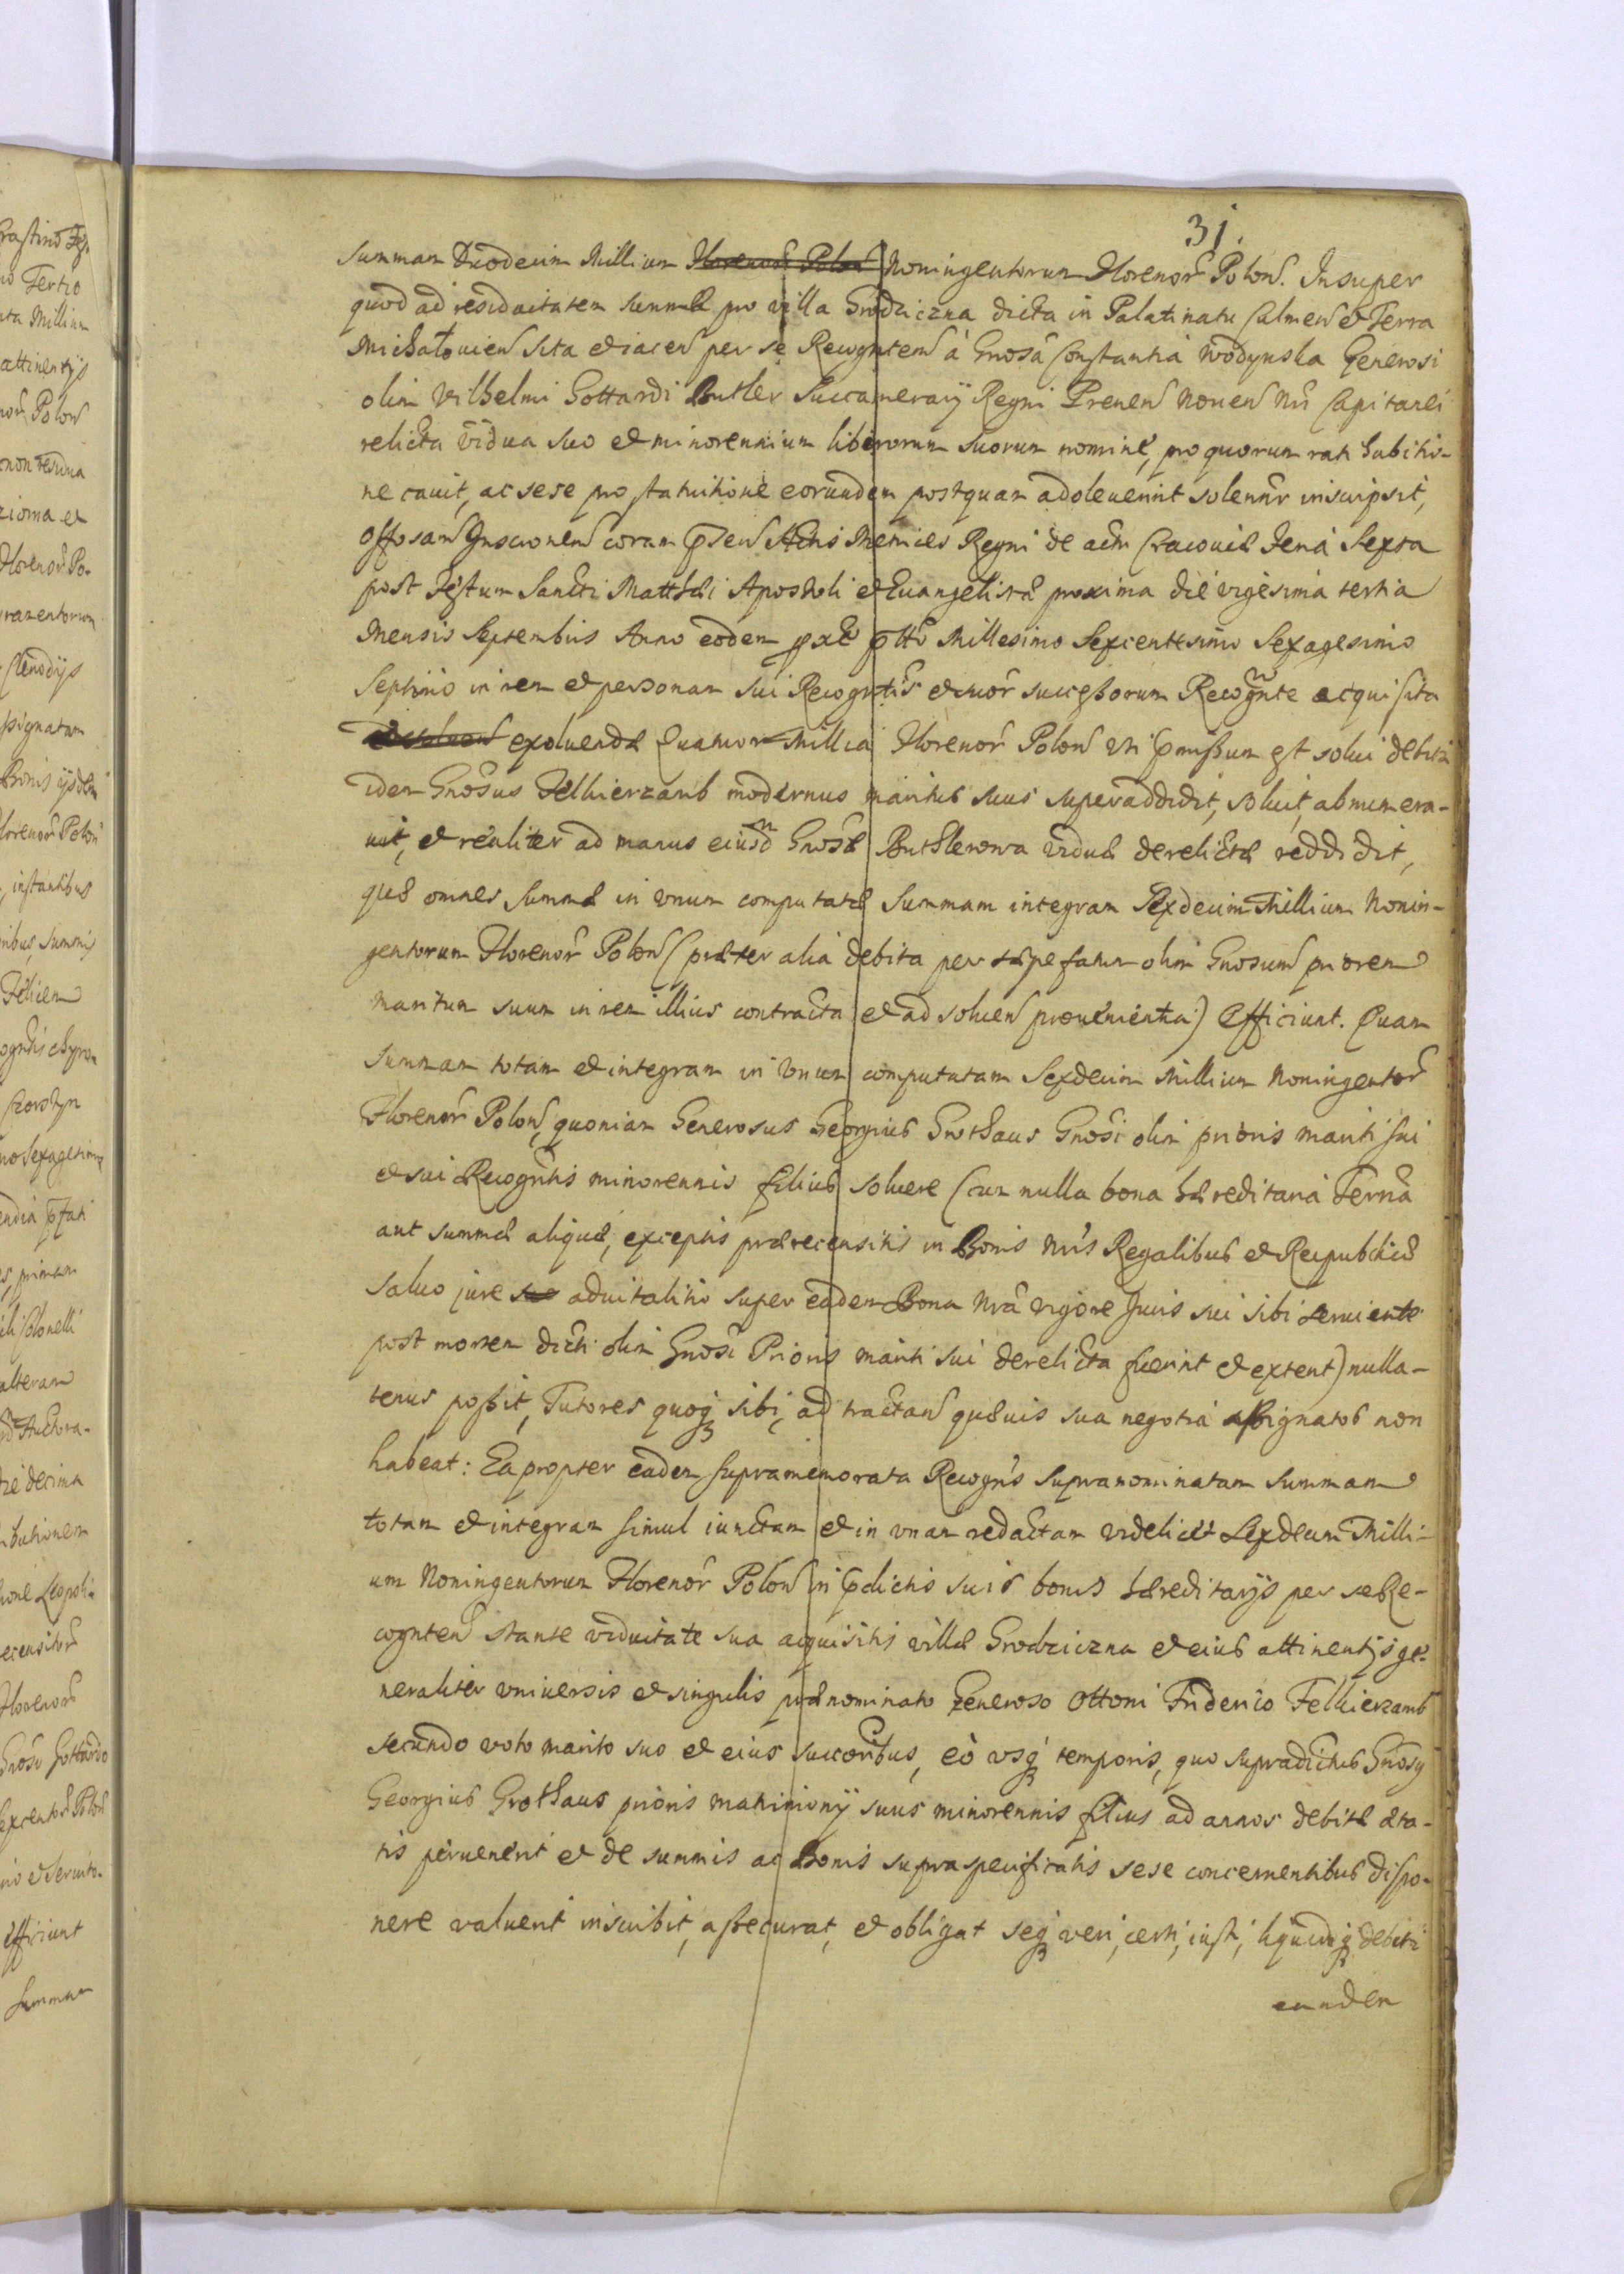 31.
summam Duodecim Millium Florenor Polon Noningentorum Florenor Polon. Insuper
quod ad residuitatem summæ pro villa Grodziczna dicta in Palatinatu Culmen et Terra
Michałouien sita et iacen per se Recognten à Gnosa Constantia Wodynska Generosi
olim Vilhelmi Gottardi Butler Succamerarij Regni Prenen Nouen Nri Capitanei
relicta vidua suo et minorennium liberorum suorum nomine, pro quorum rati habitio-
ne cauit, ac sese pro statuitione eorundem postquam adoleuerint solenr inscripsit,
coram Actis Metrices Regni de actu Cracouiæ Feria Sexta
post Festum Sancti Matthæi Apostoli et Euangelistæ proxima die vigesima tertia
Mensis Septembris Anno eodem Millesimo Sexcentesimo Sexagesimo
Septimo in rem et personam sui Recogntis et suor successorum Recognte acquisita
exoluendæ Quatuor Millia Florenor Polon vti pmissum est solui debita
idem Gnosus Felkierzamb modernus maritus suus superaddidit, soluit, abnumera-
uit, et realiter ad manus eiusd Gnosæ Buthlerowa viduæ derelictæ reddidit,
quæ omnes summæ in vnum computatæ summam integram Sexdecim Millium Nonin-
gentorum Florenor Polon (præter alia debita per sæpefatum olim Gnosum priorem
Maritum suum in rem illius contracta et ad soluen prouenientia) efficiunt. Quam
summam totam et integram in vnum computatam Sexdecim Millium Noningentor
Florenor Polon, quoniam Generosus Georgius Grothaus Gnosi olim prioris mariti sui
et sui Recogntis minorennis filius soluere (cum nulla bona hæreditaria Terria
aut summæ aliquæ, exceptis prærecensitis in Bonis Nris Regalibus et Reipublicæ
saluo jure suo aduitalitio super eadem Bona Nra vigore Juris sui sibi seruiente
post mortem dicti olim Gnosi Prioris mariti sui derelicta fuerint et extent) nulla-
tenus possit, Tutores quoq sibi, ad tractan quæuis sua negotia assignatos non
habeat: Ea propter eadem supramemorata Recogns supranominatam summam
totam et integram simul iunctam et in vnam redactam videlicet Sexdecim Milli-
um Noningentorum Florenor Polon in pdictis suis bonis hæreditarijs per se Re-
cognten stante viduitate sua acquisitis villæ Grodziczna et eius attinentijs ge-
neraliter vniuersis et singulis prænominato Generoso Ottoni Friderico Felkierzamb
secundo voto marito suo et eius succoribus, eò vsq temporis, quo supradictus Gnosy
Georgius Grothaus prioris matrimonij suus minorennis filius ad annos debitæ æta-
tis peruenerit et de summis ac Bonis supraspecificatis sese concernentibus dispo-
nere valuerit inscribit, assecurat, et obligat seq veri, certi, iusti, liquidiq debiti
eundem